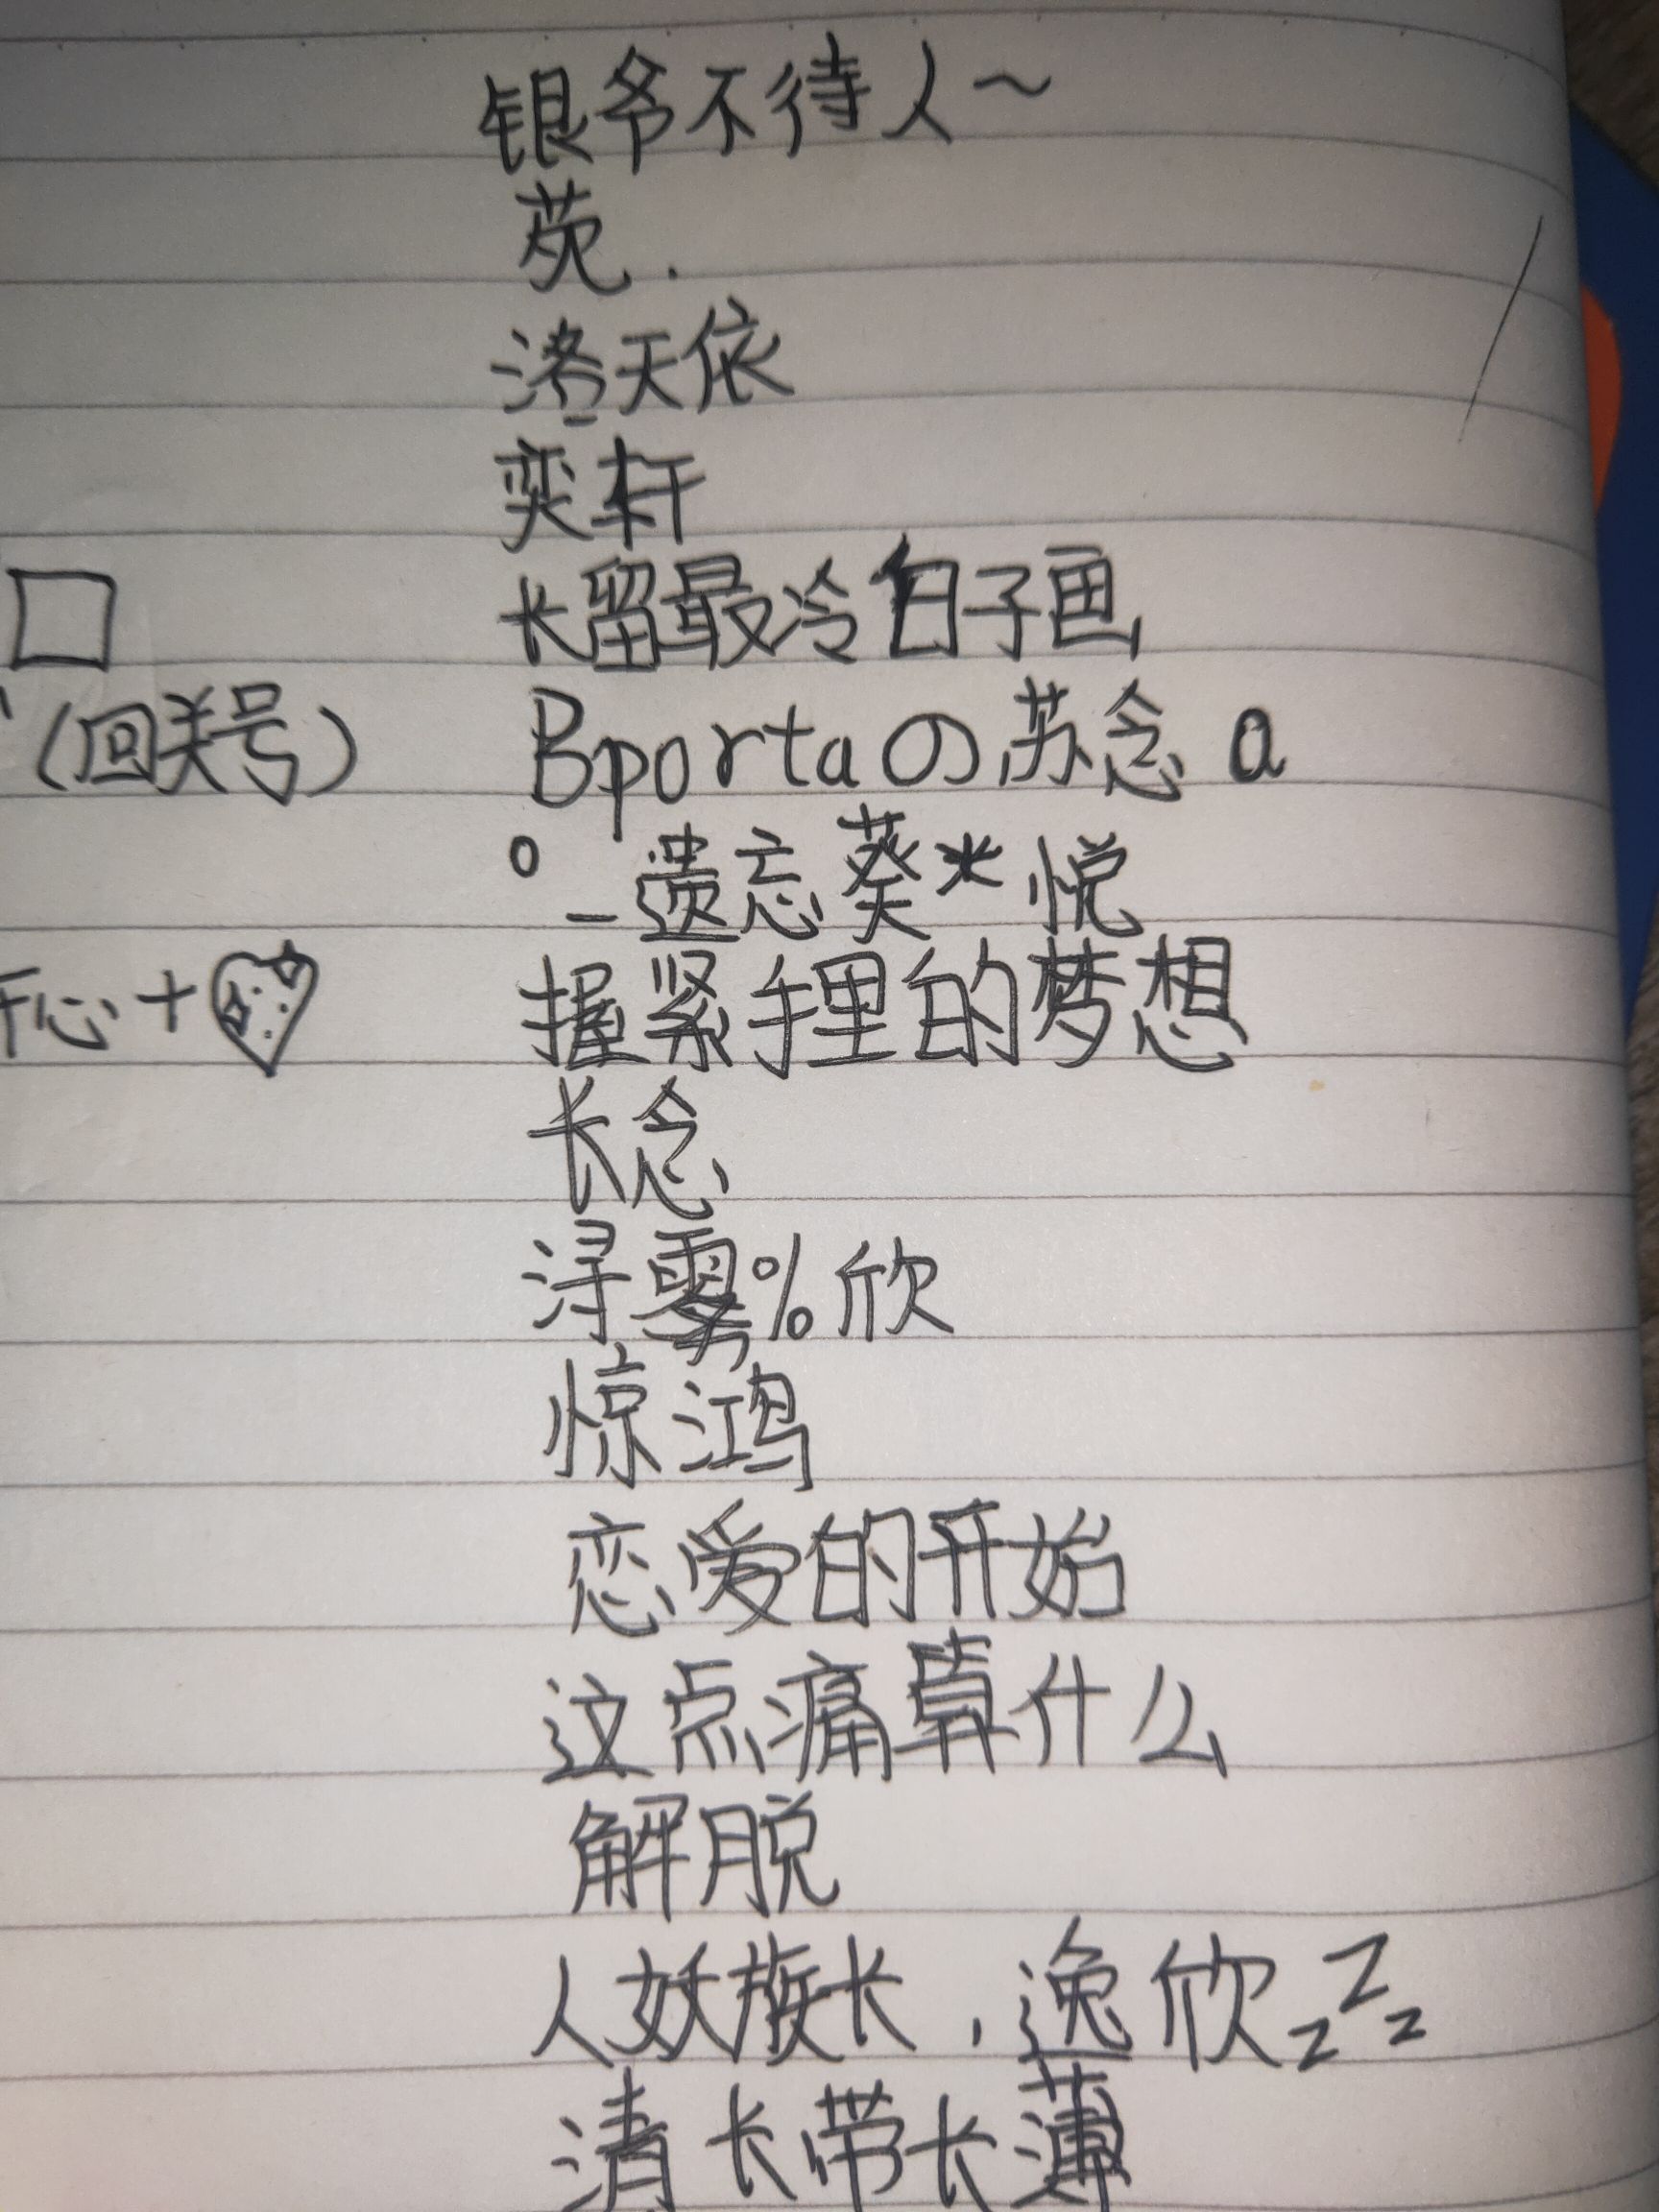 银爷不待人~
苑.
洛天依
奕轩
长留最冷白子画
(回关号) Bportaの苏念a
°_遗忘葵*悦
心+ 握紧手里的梦想
长念
浔雾%欣
惊鸿
恋爱的开始
这点痛算什么
解脱
人妖族长,逸欣zZz
清长带长薄